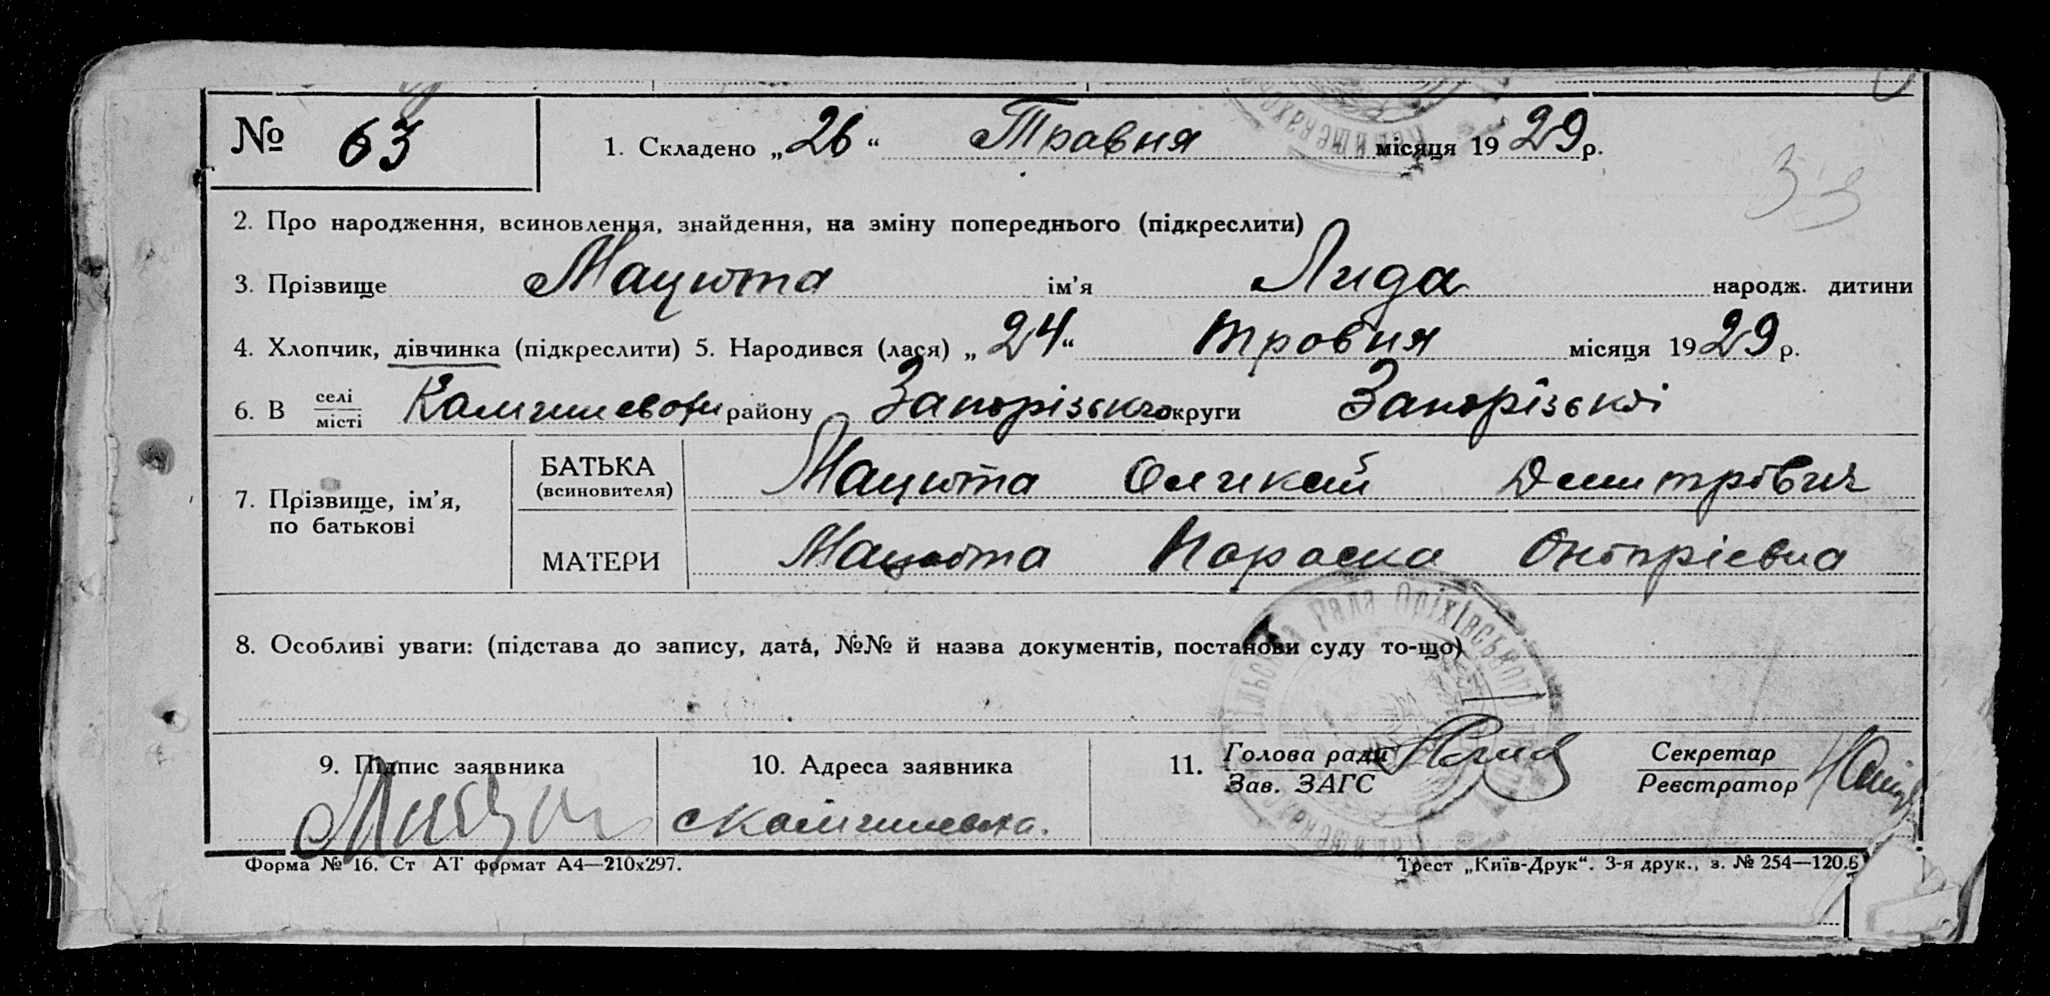 № 63
1. Складено „26“ Травня місяця 1929 р.
33
2. Про народження, всиновлення, знайдення, на зміну попереднього (підкреслити)
3. Прізвище Мацюта ім'я Лида народж. дитини
4. Хлопчик, дівчинка (підкреслити) 5. Народився (лася) „24“ тровня місяця 1929 р.
6. В селі/місті району Запорізьког округи Запорізькоі
7. Прізвище, ім'я, по батькові
БАТЬКА (всиновителя) Мацюта Олексій Дмитрович
МАТЕРИ Мацюта Пораска Онопріевна
8. Особливі уваги: (підстава до запису, дата, №№ й назва документів, постанови суду то-що)
Рада Оріхівського
9. Підпис заявника
10. Адреса заявника
11. Голова ради/Зав. ЗАГС
Секретар/Реєстратор
Форма № 16. Ст АТ формат А4—210х297.
Трест „Київ-Друк“. 3-я друк., з. № 254—120.6